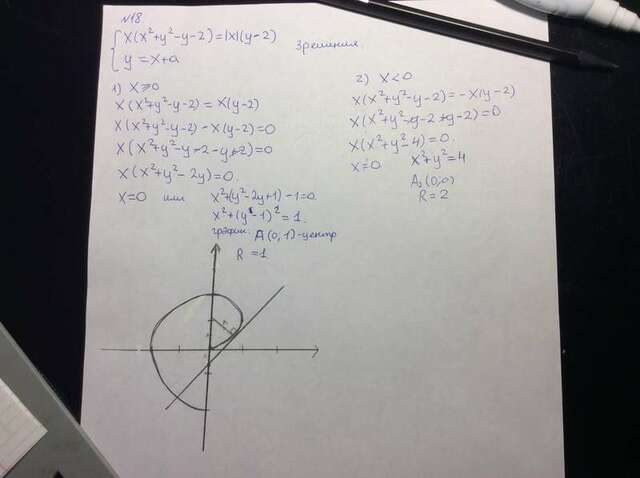 №18
x(x²+y²-y-2)=|x|(y-2)
y=x+a
3 решения.
1) x≥0
x(x²+y²-y-2)=x(y-2)
x(x²+y²-y-2)-x(y-2)=0
x(x²+y²-y-2-y+2)=0
x(x²+y²-2y)=0.
x=0 или x²+(y²-2y+1)-1=0.
x²+(y-1)²=1.
график: A(0,1)-центр
R=1
2) x<0
x(x²+y²-y-2)=-x(y-2)
x(x²+y²-y-2+y-2)=0
x(x²+y²-4)=0.
x=0 x²+y²=4
A₁(0;0)
R=2